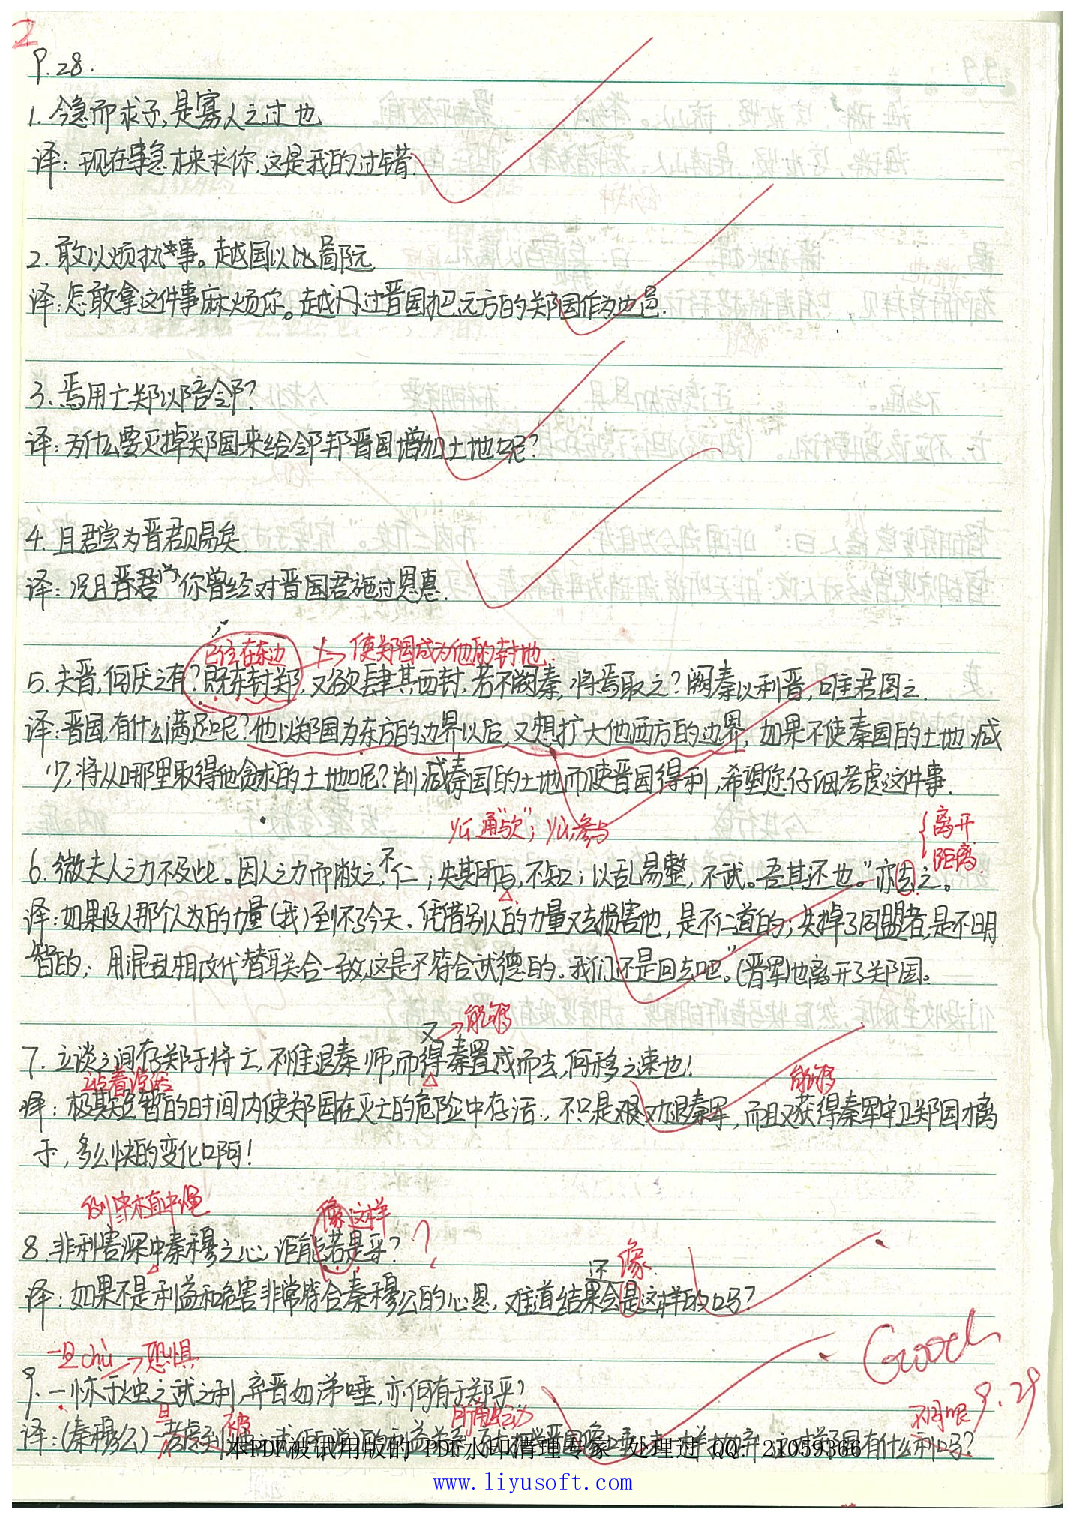 2
P.28.
1. 今急而求子,是寡人之过也
译: 现在危急才来求你,这是我的过错.
2. 敢以烦执事。越国以鄙远
译: 怎敢拿这件事麻烦你。越过晋国把远方的郑国作为边邑.
3. 焉用亡郑以陪邻?
译: 为什么要灭掉郑国来给邻邦晋国增加土地呢?
4. 且君尝为晋君赐矣
译: 况且你曾经对晋国君施过恩惠.
已往在东边 使郑国成为他的封地
5. 夫晋,何厌之有?既东封郑,又欲肆其西封,若不阙秦,将焉取之?阙秦以利晋,唯君图之.
译: 晋国有什么满足呢?他以郑国为东方的边界以后,又想扩大他西方的边界,如果不使秦国的土地减
少,将从哪里取得他贪求的土地呢?削减秦国的土地而使晋国得利,希望您仔细考虑这件事.
离开
距离
6. 微夫人之力不及此。因人之力而敝之,不仁;失其所与,不知;以乱易整,不武。吾其还也。"亦去之。
译: 如果没人那个人的力量(我)到不了今天.凭借别人的力量又去损害他,是不仁道的;失掉了同盟者,是不明
智的;用混乱相攻代替联合一致,这是不符合武德的。我们还是回去吧。"(晋军)也离开了郑国。
又 能够
7. 立谈之间存郑于将亡,不惟退秦师,而得秦置戍而去,何移之速也!
站着谈话 能够
译: 极其短暂的时间内使郑国在灭亡的危险中存活,不只是退秦军,而且又获得秦军守卫郑国才离
去,多么快的变化啊!
像这样
8. 非利害深中秦穆之心,讵能若是乎?
还 像
译: 如果不是利益和危害非常符合秦穆公的心思,难道结果会是这样的吗?
Good
9.29
一旦 chù 恐惧
9. 一怵于烛之武之利,弃晋如涕唾,亦何有于郑乎?
旦 被
译: (秦穆公)一
本PDF被试用版的 PDF水印清理专家 处理过 QQ: 21059366
www.liyusoft.com